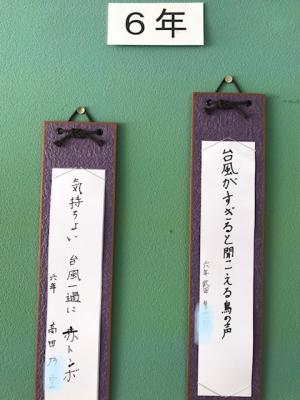 6年
台風がすぎると聞こえる鳥の声
六年 武田
気持ちよい 台風一過に 赤トンボ
六年 高田